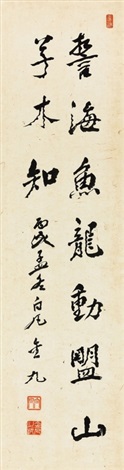 誓海魚龍動盟山
草木知
丙戌孟冬白凡金九